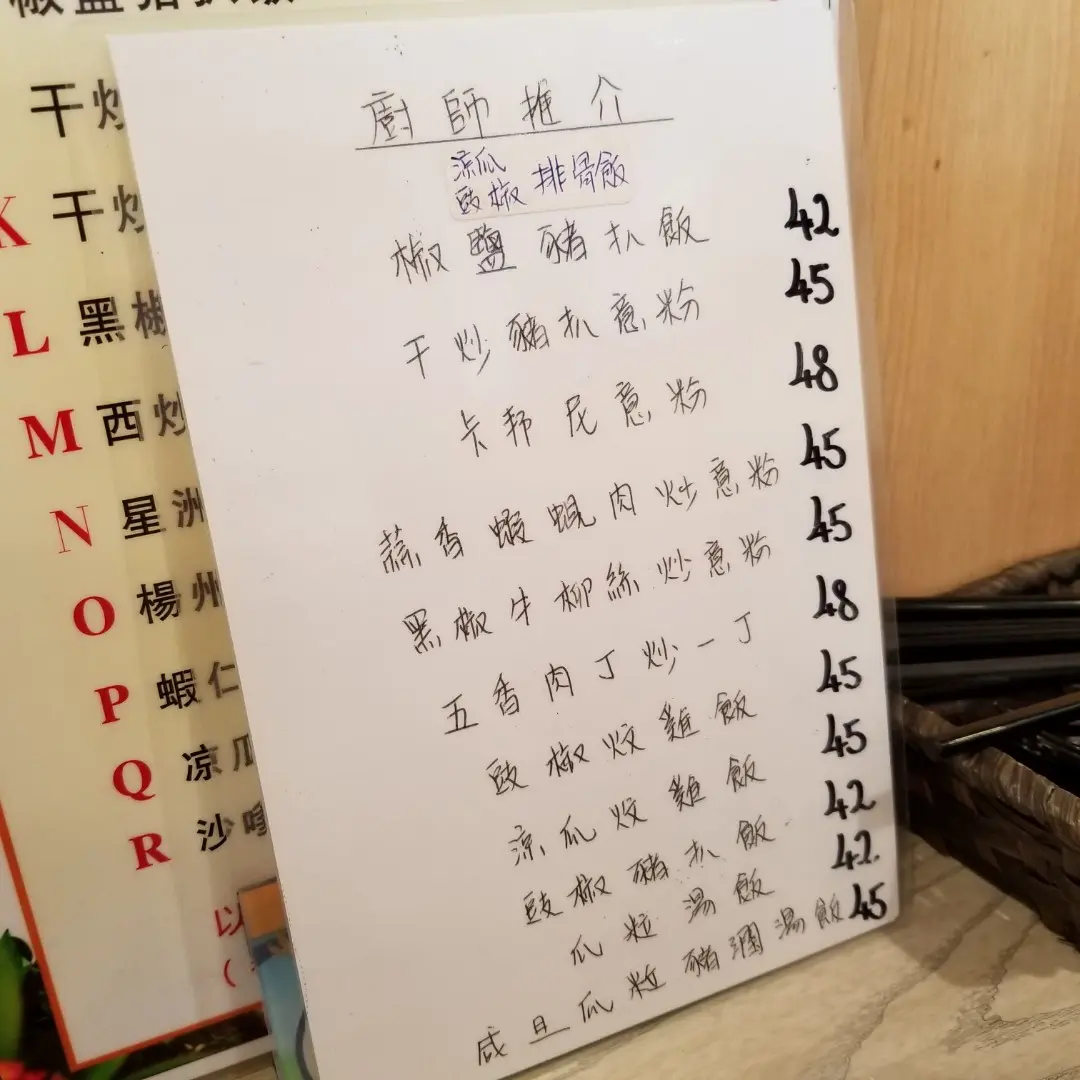 廚師推介
涼瓜
豉椒 排骨飯
椒鹽豬扒飯 42
干炒豬扒意粉 45
卡邦尼意粉 48
蒜香蝦蜆肉炒意粉 45
黑椒牛柳絲炒意粉 45
五香肉丁炒一丁 48
豉椒炆雞飯 45
涼瓜炆雞飯 45
豉椒豬扒飯 42
瓜粒湯飯 42.
咸旦瓜粒豬潤湯飯 45
干炒
K 干炒
L 黑椒
M 西炒
N 星洲
O 楊州
P 蝦仁
Q 凉瓜
R 沙嗲
以
(